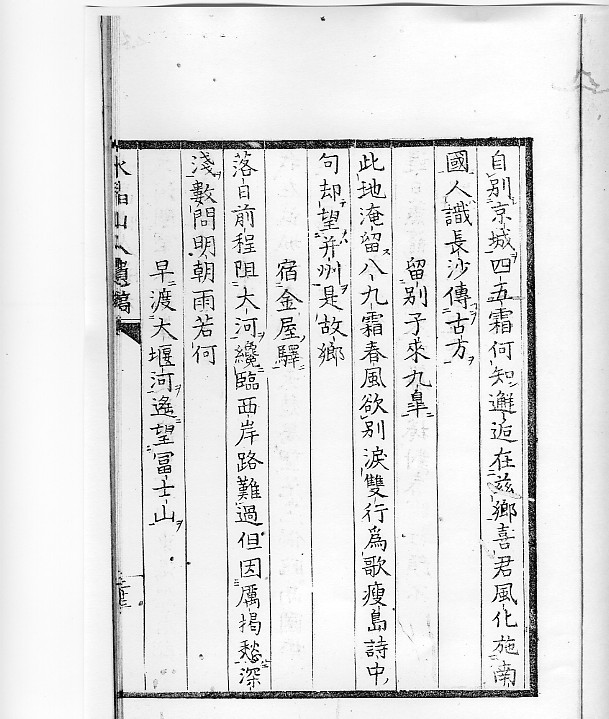 自別京城四五霜何知邂逅在茲鄉喜君風化施南
國人識長沙傳古方
留別子來九皐
此地淹留八九霜春風欲別淚雙行爲歌瘦島詩中
句却望并州是故鄉
宿金屋驛
落日前程阻大河纔臨西岸路難過但因厲揭愁深
淺數問明朝雨若何
早渡大堰河遙望冨士山
山人遺稿